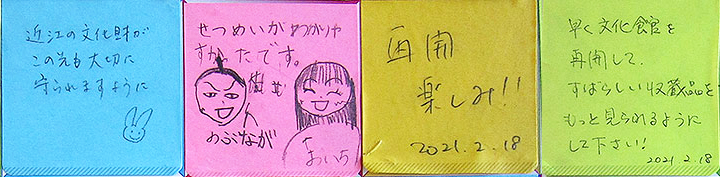 近江の文化財が
この先も大切に
守られますように
せつめいが わかりや
すかったです。
のぶなが
おいち
再開
楽しみ!!
2021.2.18
早く文化館を
再開して、
すばらしい収蔵品を
もっと見られるように
して下さい!
2021.2.18